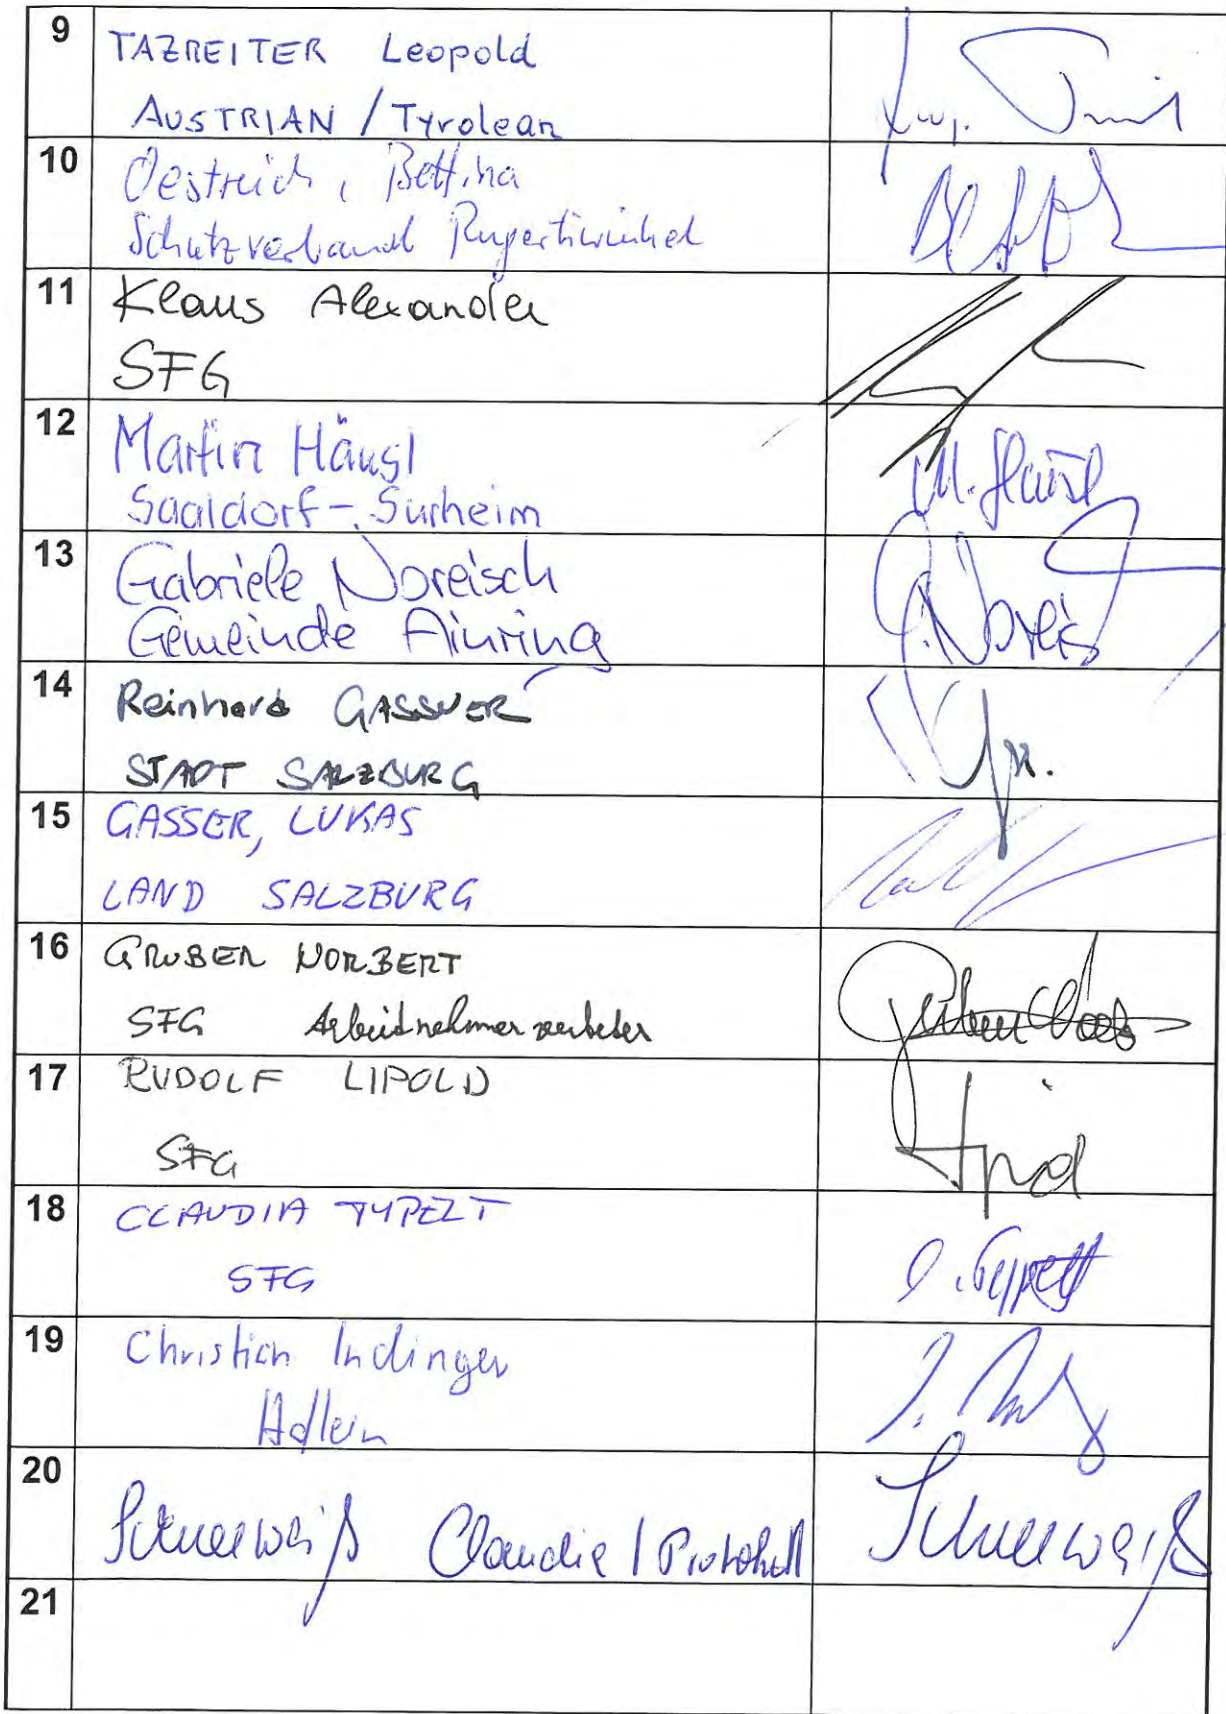 9
TAZREITER Leopold
AUSTRIAN / Tyrolean
10
Oestreich, Bettina
Schutzverband Rupertiwinkel
11
Klaus Alexander
SFG
12
Martin Häusl
M. Häusl
Saaldorf-Surheim
13
Gabriele Noreisch
G. Noreis
Gemeinde Ainring
14
Reinhard GASSNER
STADT SALZBURG
15
GASSER, LUKAS
LAND SALZBURG
16
GRUBER NORBERT
SFG Arbeitnehmervertreter
17
RUDOLF LIPOLD
SFG
18
CLAUDIA TYPELT
SFG
C. Typelt
19
Christian Indinger
Hallein
20
Schneeweiß Claudia / Protokoll
Schneeweiß
21